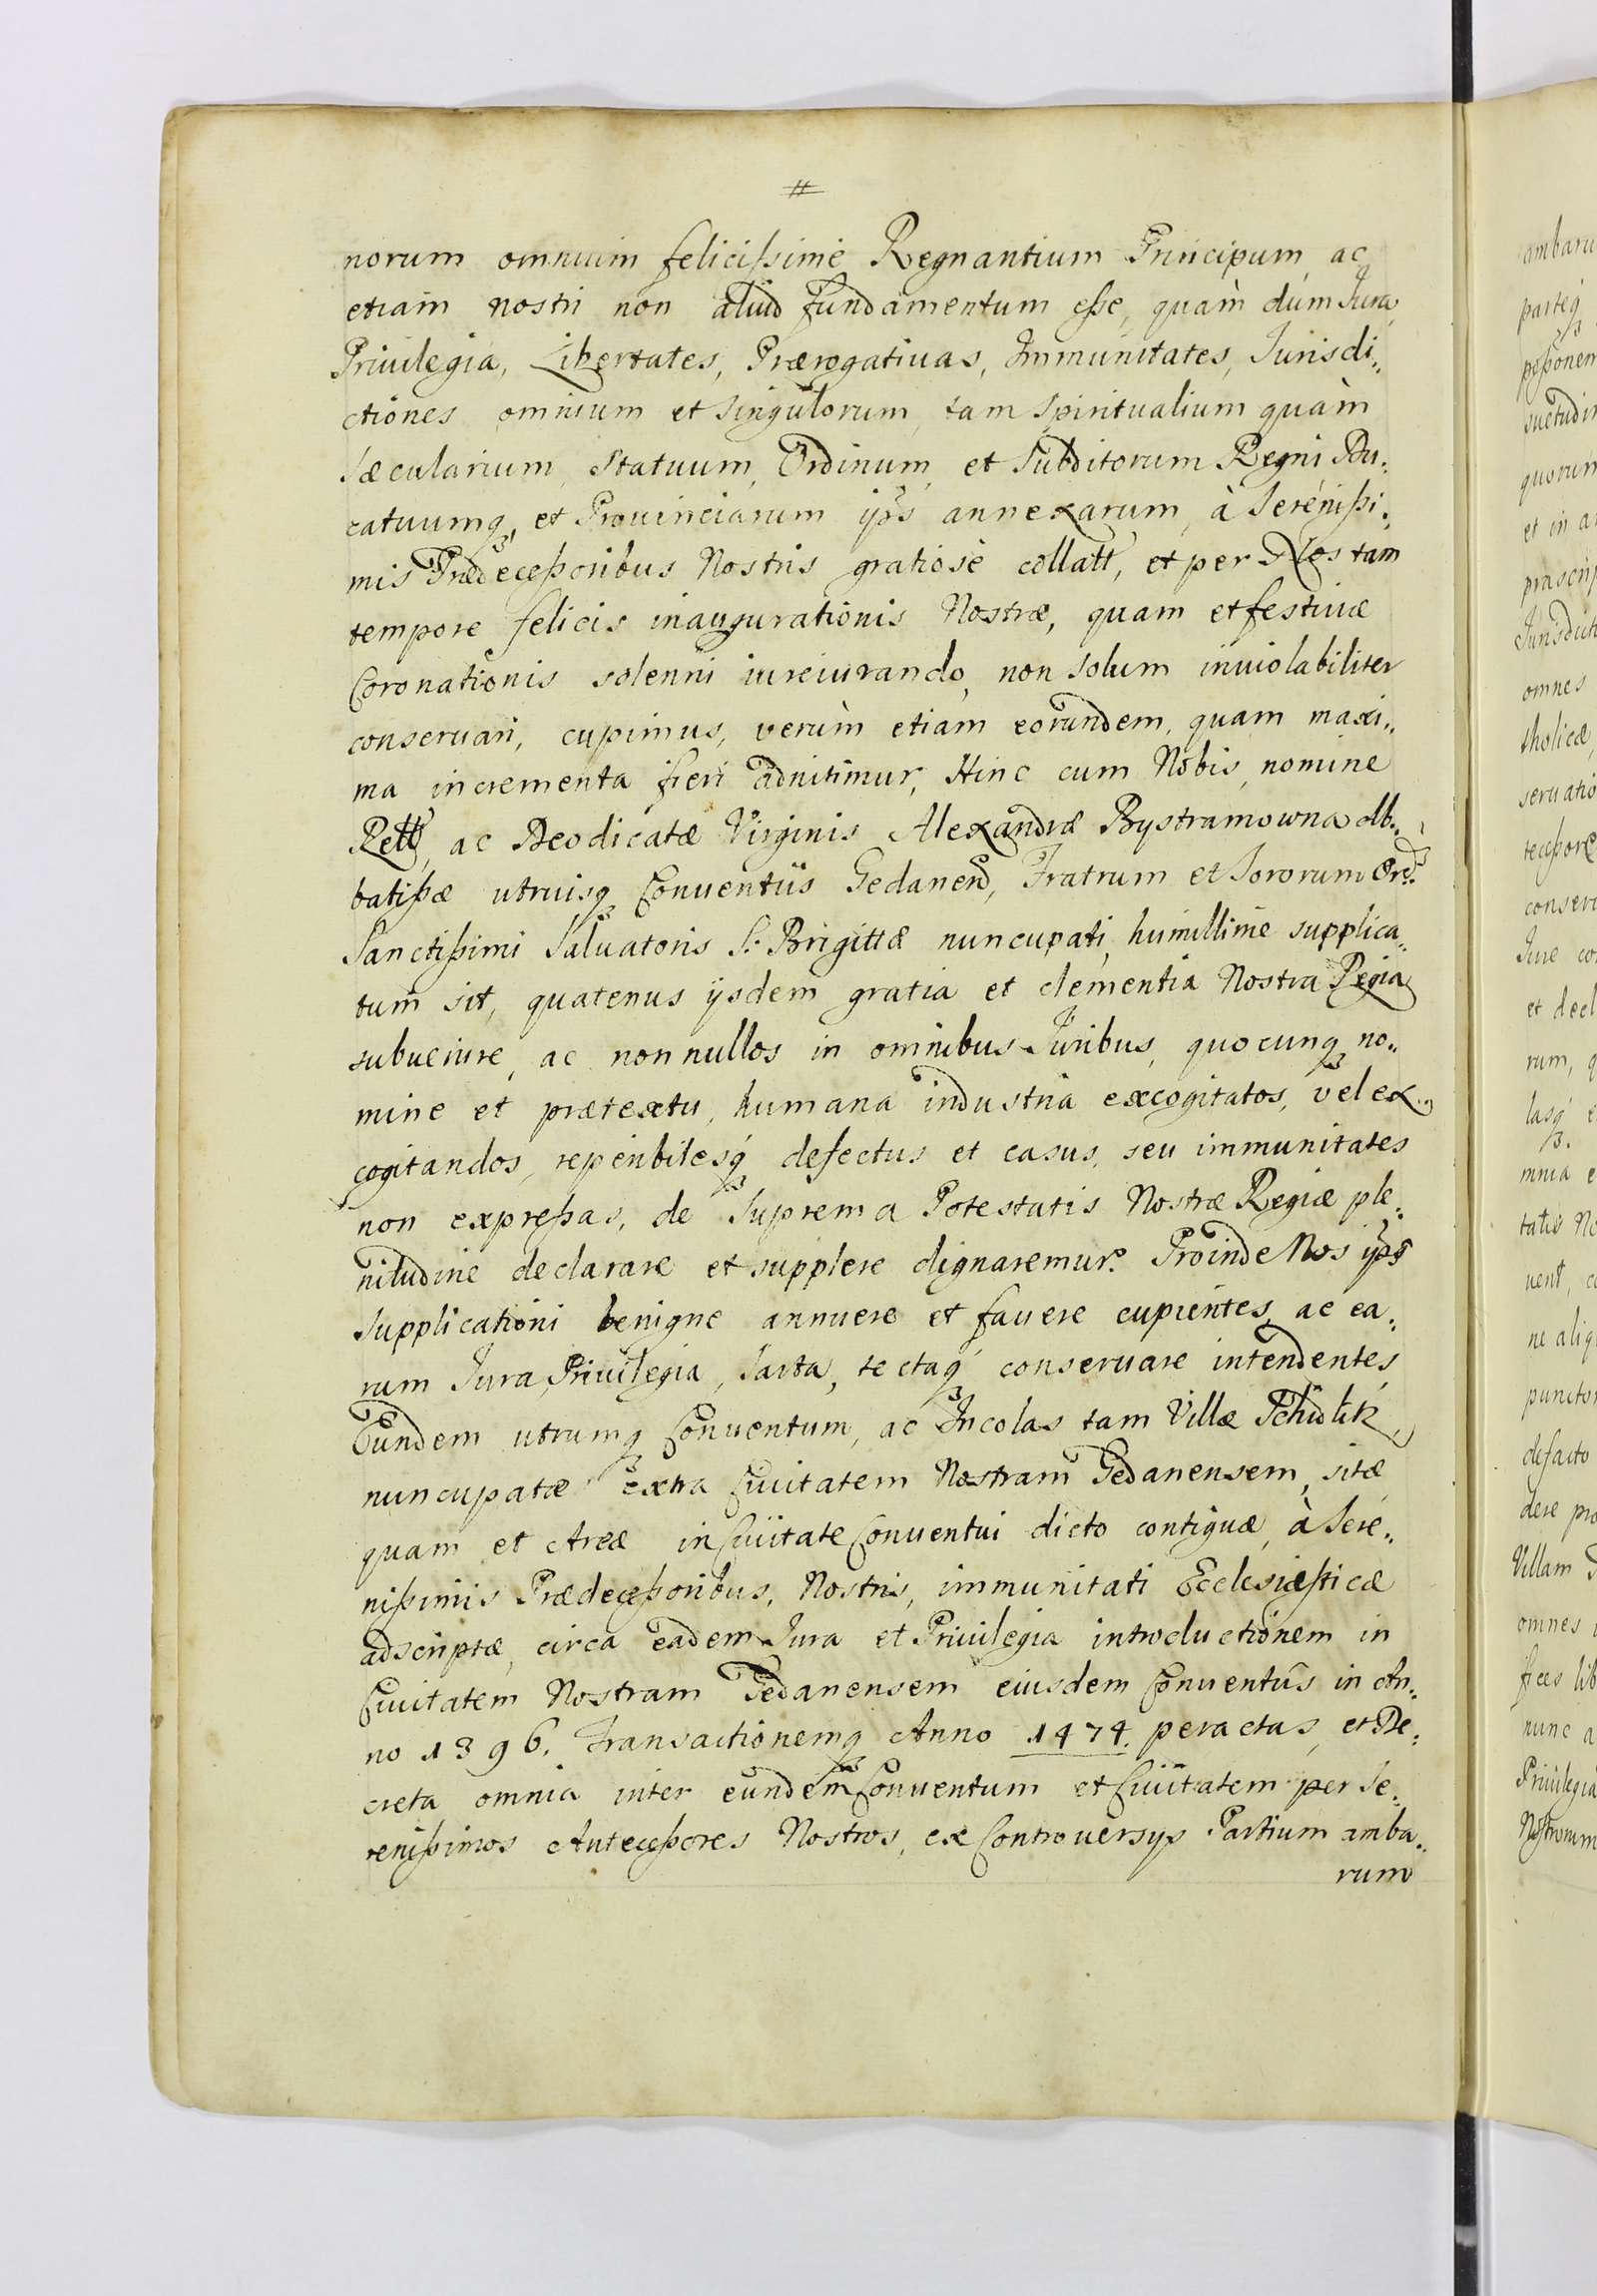 #
norum omnium felicissimè Regnantium Principum, ac
etiam nostri non aliud fundamentum esse, quàm dùm Iura,
Priuilegia, Libertates, Prærogatiuas, Immunitates, Iurisdi„
ctiones omnium et singulorum, tam Spiritualium quàm
Sæcularium, Statuum, Ordinum, et Subditorum Regni Du„
catuumq3, et Prouinciarum ijs annexarum, à Serenissi„
mis Prædecessoribus Nostris gratiosè collatt, et per Nos tam
tempore felicis inaugurationis Nostræ, quam et festiuæ
Coronationis solenni iureiurando, non solum inuiolabiliter
conseruari, cupimus, verùm etiam eorundem, quam maxi„
ma incrementa fieri adnitimur, Hinc cum Nobis, nomine
ac Deodicatæ Virginis Alexandræ Bystramowna Ab„
batissæ utriusq3 Conuentûs Gedanen, Fratrum et Sororum Ord:
Sanctissimi Saluatoris S. Brigittæ nuncupati, humillimè supplica„
tum sit, quatenus ijsdem gratia et clementia Nostra Regia
subuenire, ac nonnullos in omnibus Iuribus, quocunq3 no„
mine et prætextu, humana industria excogitatos, vel ex„
cogitandos, reperibilesq3 defectus et casus, seu immunitates
non expressas, de Suprema Potestatis Nostræ Regiæ ple„
nitudine declarare et supplere dignaremur. Proinde Nos
Supplicationi benigne annuere et fauere cupientes, ac ea„
rum Iura, Priuilegia, Sarta, tectaq3 conseruare intendentes,
Eundem utrumq3 Conuentum, ac Incolas tam Villæ Schidlitz,
nuncupatæ extra Ciuitatem Nostram Gedanensem, sitæ
quam et Areæ in Ciuitate Conuentui dicto contiguæ, à Sere„
nissimis Prædecessoribus, Nostris, immunitati Ecclesiasticæ
adscriptæ, circa eadem Iura et Priuilegia introductionem in
Ciuitatem Nostram Gedanensem eiusdem Conuentûs in An„
no 1396. Transactionemq3 Anno 1474. peractas, et De„
creta omnia inter eundem Conuentum et Ciuitatem per Se„
renissimos Antecessores Nostros, ex Controuersijs Partium amba„
rum
ambaru
parteq3
quorum
et in a
omnes
tholicæ
conser
et decl
rum, q
lasq3 e
mnia e
tatis No
ne aliq
defacto
dere pro
Villam
omnes
nunc a
Priuilegia
Nostrorum